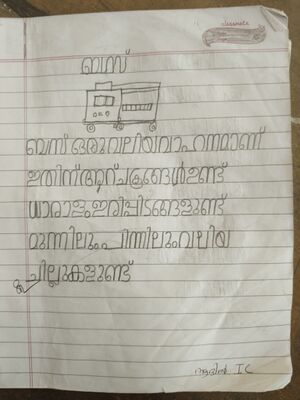 classmate
ബസ്
ബസ് ഒരു വലിയ വാഹനമാണ്
ഇതിന് ആറ് ചക്രങ്ങൾ ഉണ്ട്
ധാരാളം ഇരിപ്പിടങ്ങളുണ്ട്
മുന്നിലും പിന്നിലും വലിയ
ചില്ലുകളുണ്ട്
I C